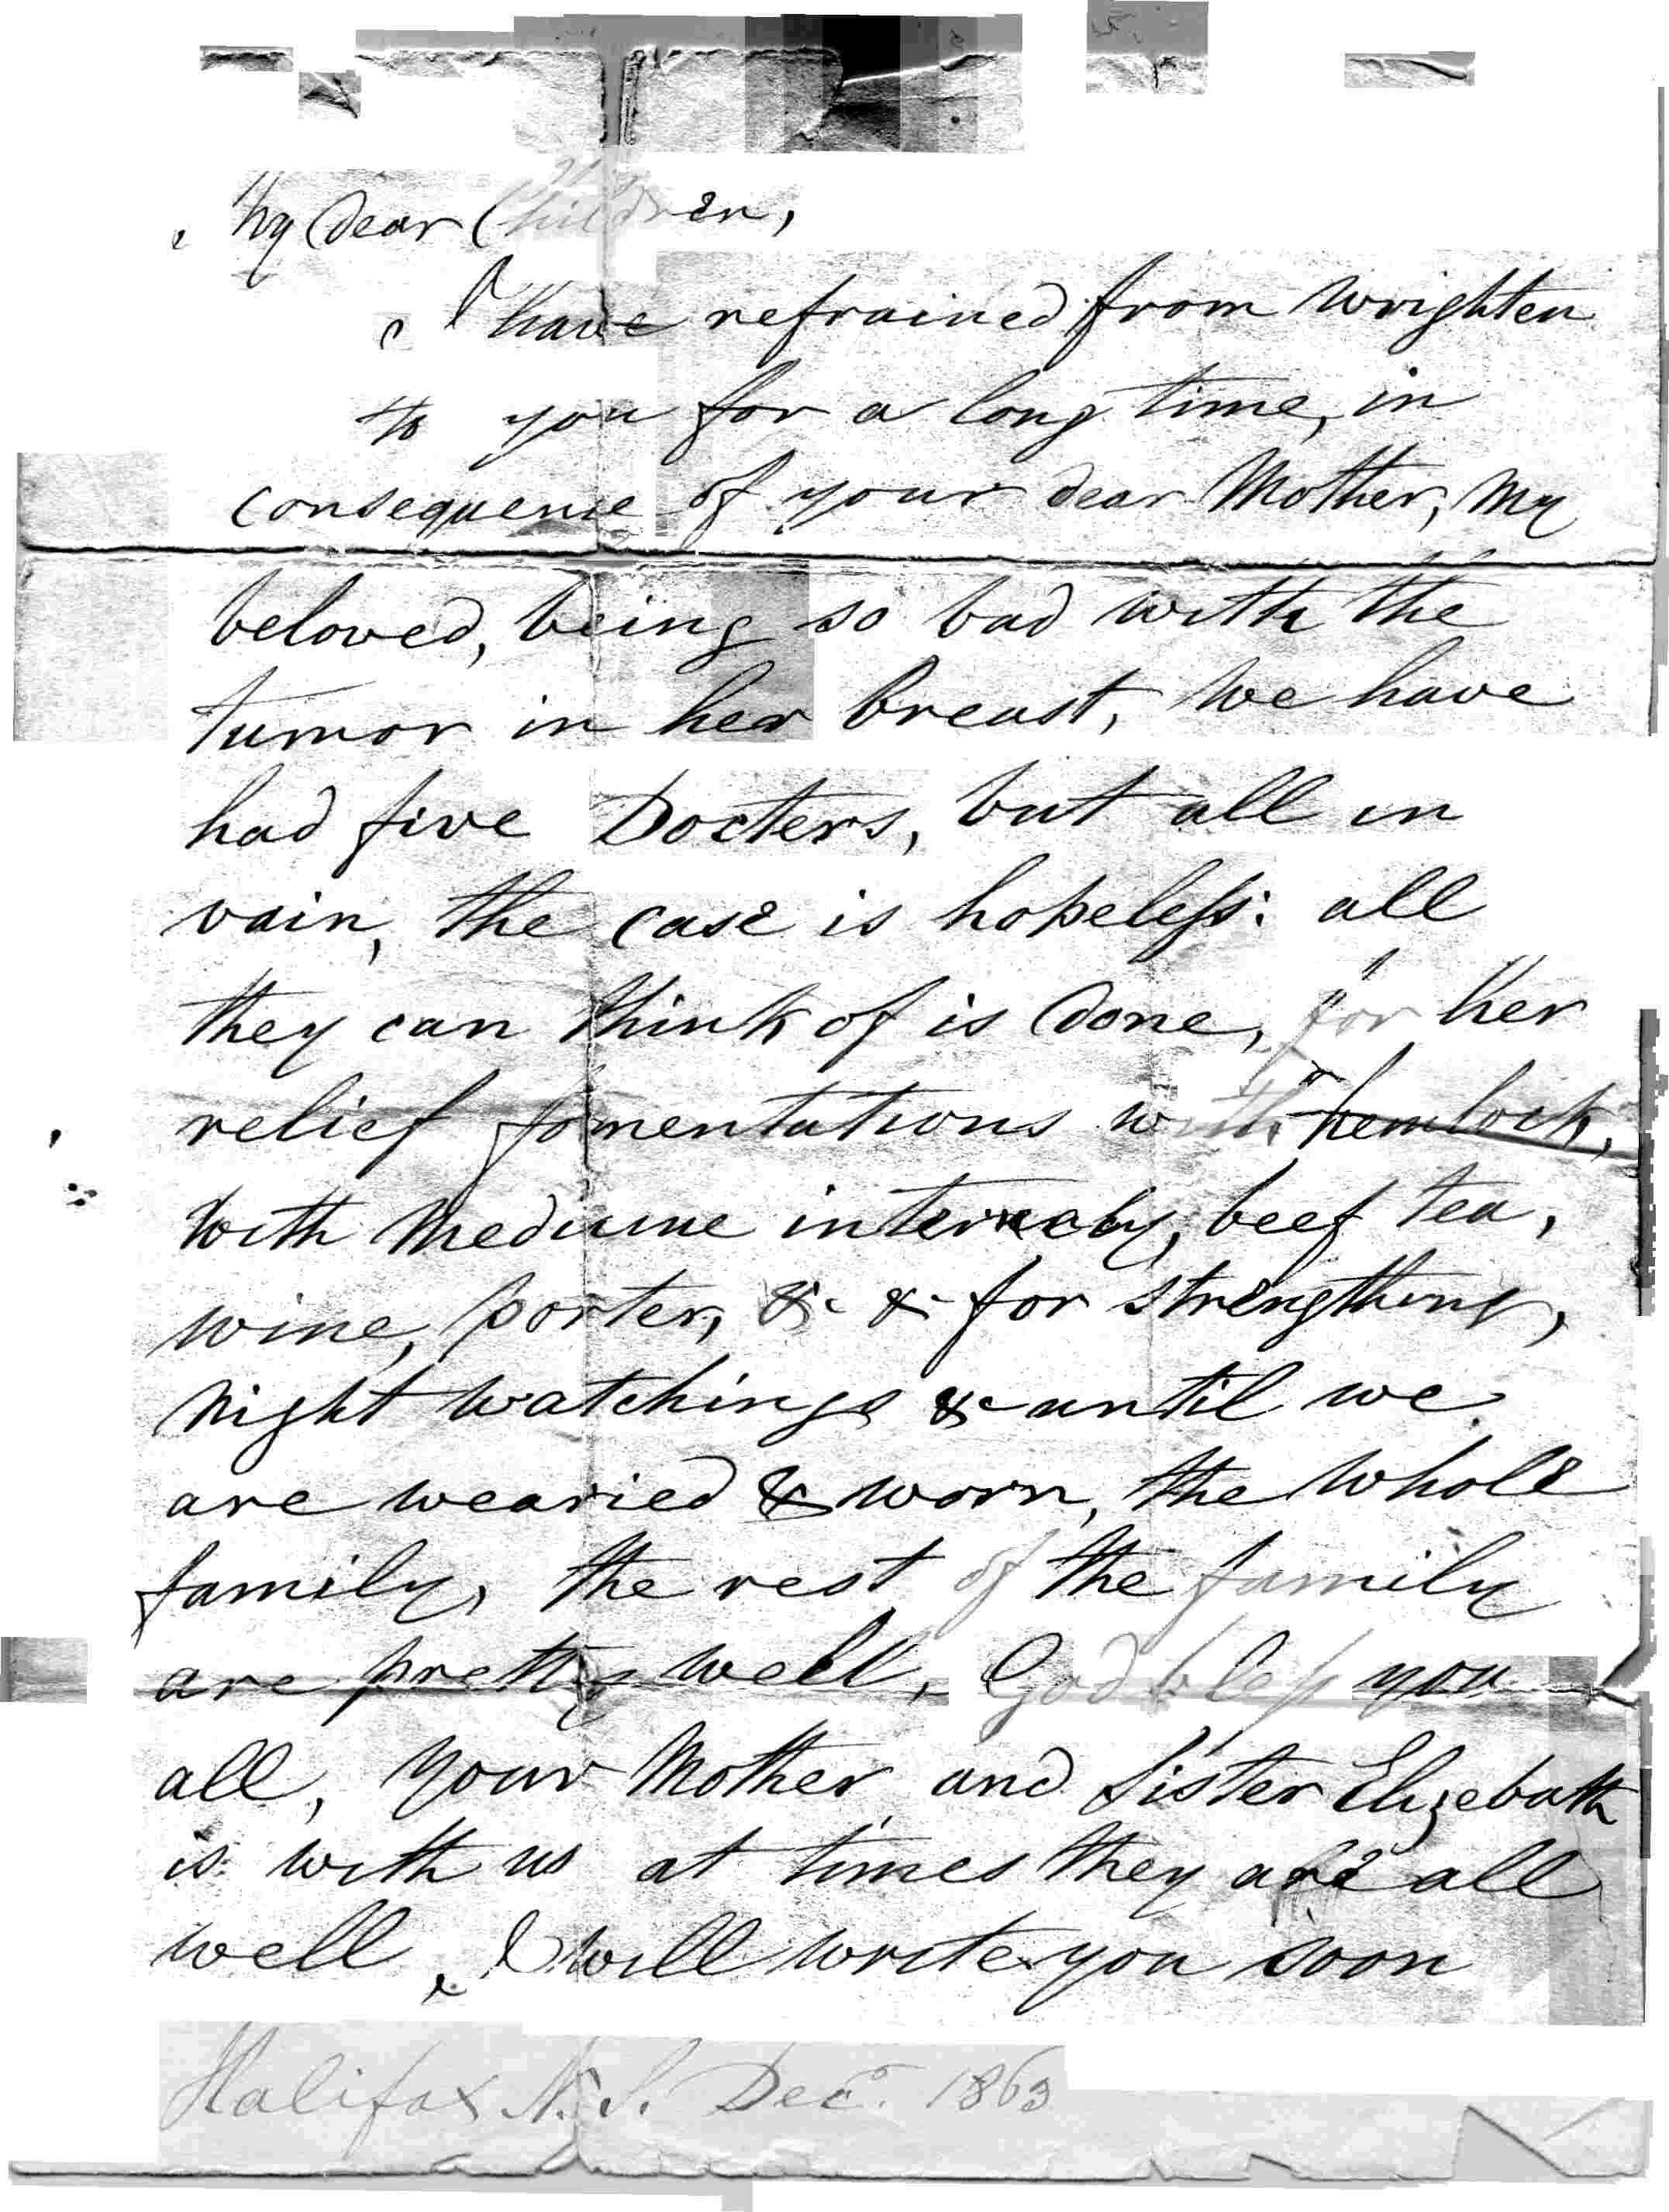 My dear Children,
I have refrained from wrighten
to you for a long time, in
consequence of your dear Mother, My
beloved, being so bad with the
tumor in her breast, we have
had five Docters, but all in
vain, the case is hopeless: all
they can think of is done, for her
relief fomentations with hemlock,
with Medicine internaly, beef tea,
wine, porter, & & for strengthing,
Night watchings & until we
are wearied & worn, the whole
family, the rest of the family
are pretty well, God bless you
all, Your Mother and Sister Elizebath
is with us at times they are all
well, I will write you soon
Halifax N. S. Dec. 1863